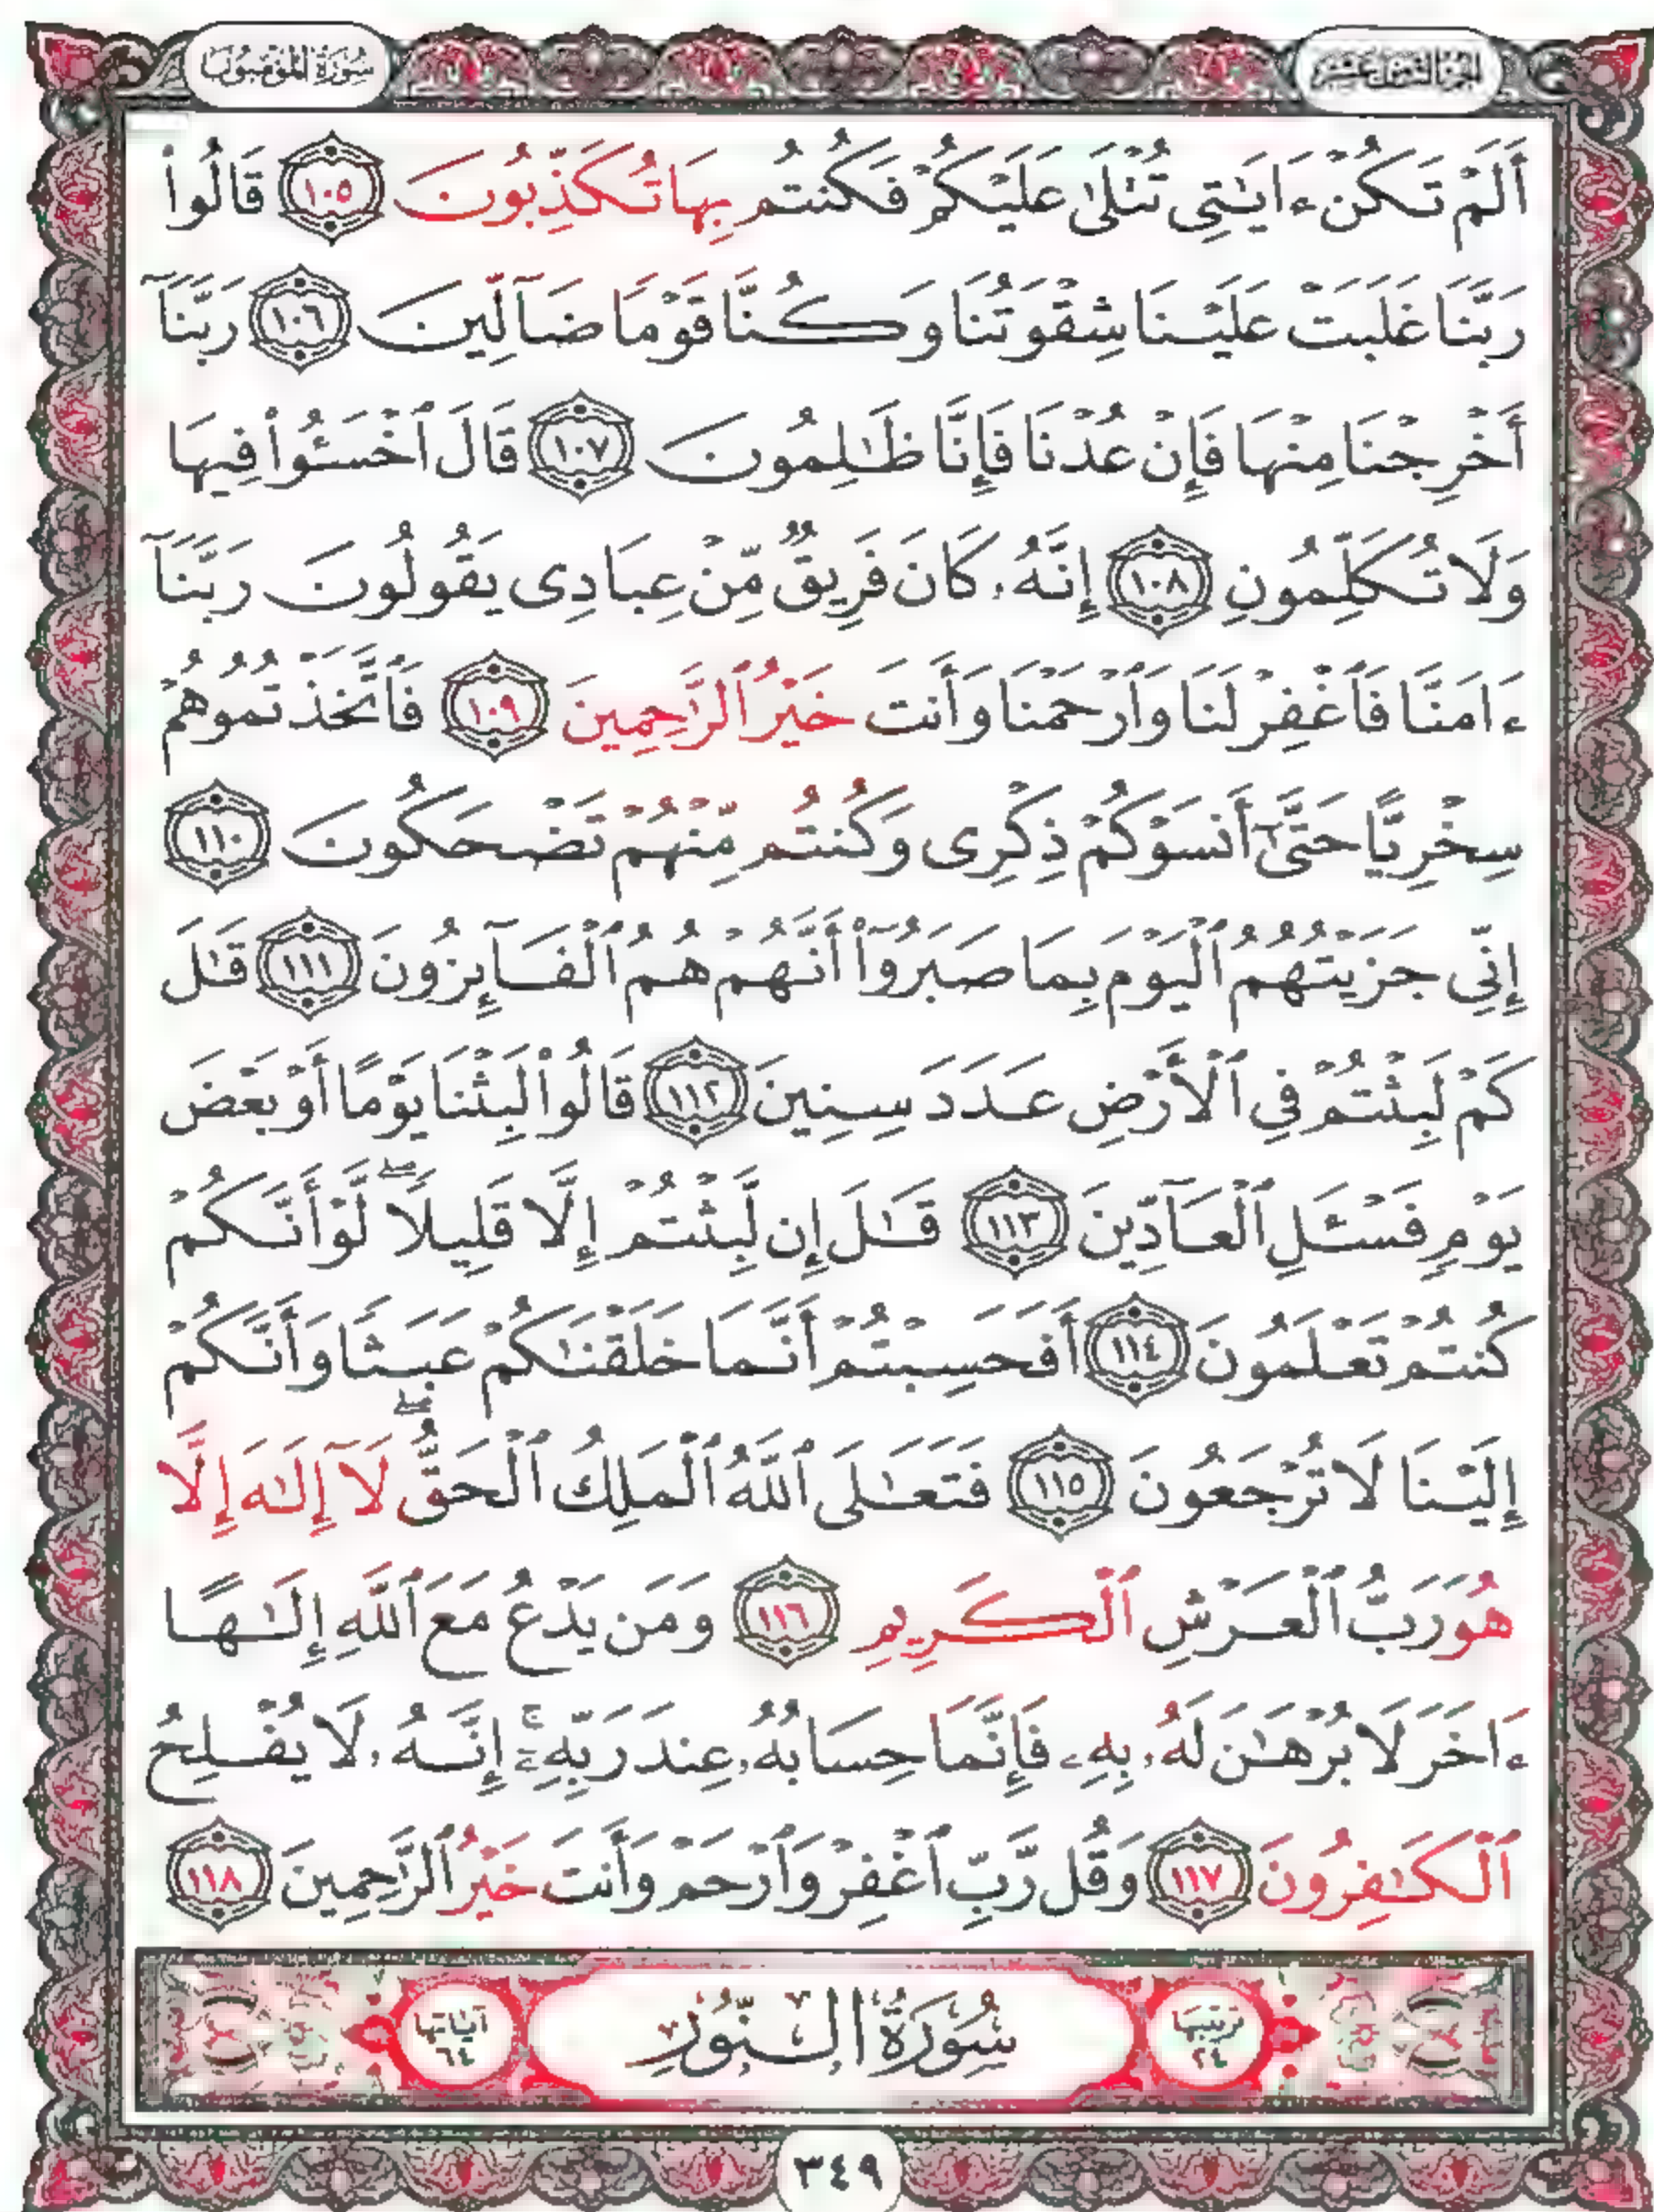 الجزء الثامن عشر
سُورَةُ المُؤْمِنُونَ
أَلَمْ تَكُنْ ءَايَٰتِى تُتْلَىٰ عَلَيْكُمْ فَكُنتُم بِهَا تُكَذِّبُونَ ١٠٥ قَالُوا۟
رَبَّنَا غَلَبَتْ عَلَيْنَا شِقْوَتُنَا وَكُنَّا قَوْمًا ضَآلِّينَ ١٠٦ رَبَّنَآ
أَخْرِجْنَا مِنْهَا فَإِنْ عُدْنَا فَإِنَّا ظَٰلِمُونَ ١٠٧ قَالَ ٱخْسَـُٔوا۟ فِيهَا
وَلَا تُكَلِّمُونِ ١٠٨ إِنَّهُۥ كَانَ فَرِيقٌ مِّنْ عِبَادِى يَقُولُونَ رَبَّنَآ
ءَامَنَّا فَٱغْفِرْ لَنَا وَٱرْحَمْنَا وَأَنتَ خَيْرُ ٱلرَّٰحِمِينَ ١٠٩ فَٱتَّخَذْتُمُوهُمْ
سِخْرِيًّا حَتَّىٰٓ أَنسَوْكُمْ ذِكْرِى وَكُنتُم مِّنْهُمْ تَضْحَكُونَ ١١٠
إِنِّى جَزَيْتُهُمُ ٱلْيَوْمَ بِمَا صَبَرُوٓا۟ أَنَّهُمْ هُمُ ٱلْفَآئِزُونَ ١١١ قَٰلَ
كَمْ لَبِثْتُمْ فِى ٱلْأَرْضِ عَدَدَ سِنِينَ ١١٢ قَالُوا۟ لَبِثْنَا يَوْمًا أَوْ بَعْضَ
يَوْمٍ فَسْـَٔلِ ٱلْعَآدِّينَ ١١٣ قَٰلَ إِن لَّبِثْتُمْ إِلَّا قَلِيلًا ۖ لَّوْ أَنَّكُمْ
كُنتُمْ تَعْلَمُونَ ١١٤ أَفَحَسِبْتُمْ أَنَّمَا خَلَقْنَٰكُمْ عَبَثًا وَأَنَّكُمْ
إِلَيْنَا لَا تُرْجَعُونَ ١١٥ فَتَعَٰلَى ٱللَّهُ ٱلْمَلِكُ ٱلْحَقُّ ۖ لَآ إِلَٰهَ إِلَّا
هُوَ رَبُّ ٱلْعَرْشِ ٱلْكَرِيمِ ١١٦ وَمَن يَدْعُ مَعَ ٱللَّهِ إِلَٰهًا
ءَاخَرَ لَا بُرْهَٰنَ لَهُۥ بِهِۦ فَإِنَّمَا حِسَابُهُۥ عِندَ رَبِّهِۦٓ ۚ إِنَّهُۥ لَا يُفْلِحُ
ٱلْكَٰفِرُونَ ١١٧ وَقُل رَّبِّ ٱغْفِرْ وَٱرْحَمْ وَأَنتَ خَيْرُ ٱلرَّٰحِمِينَ ١١٨
ترتيبها ٢٤
سُورَةُ النُّورِ
آياتها ٦٤
٣٤٩